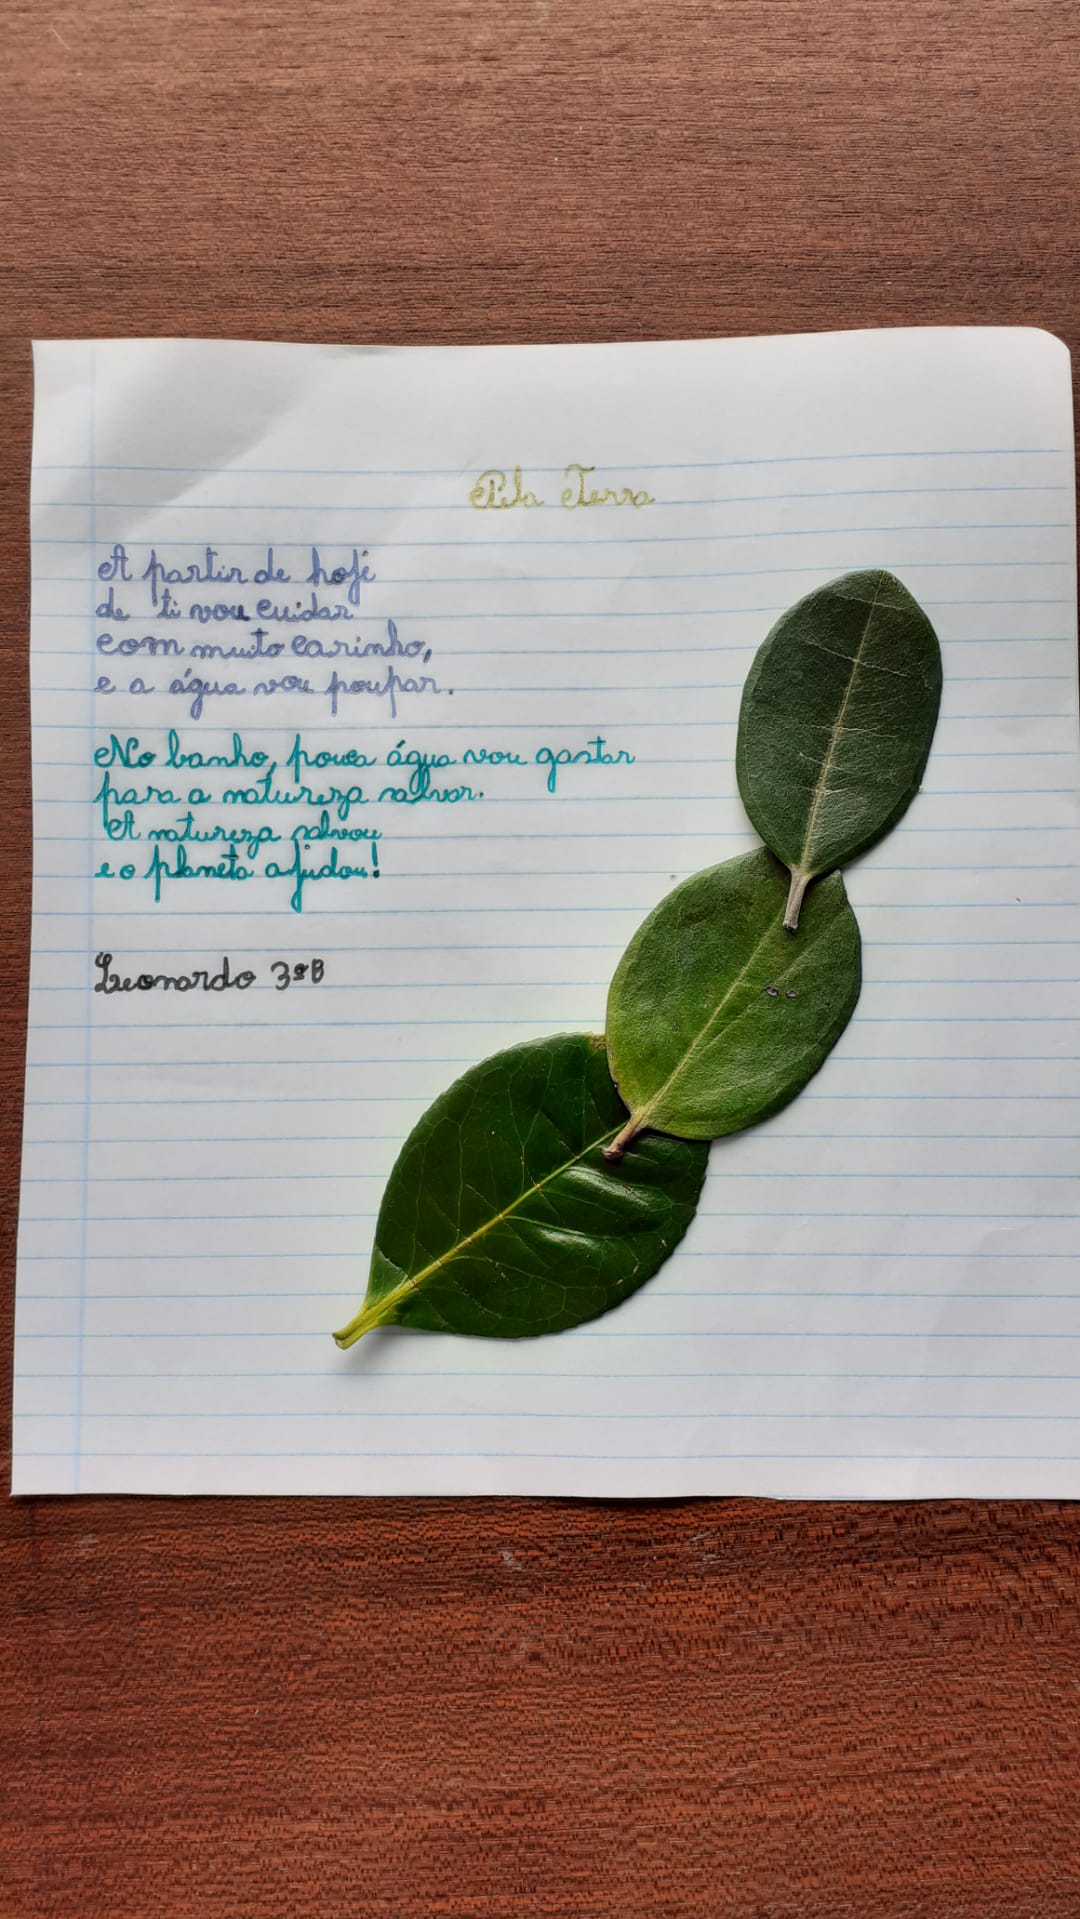 Pela Terra
A partir de hoje
de ti vou cuidar
com muito carinho,
e a água vou poupar.
No banho, pouca água vou gastar
para a natureza salvar.
A natureza salvou
e o planeta ajudou!
Leonardo 3ºB